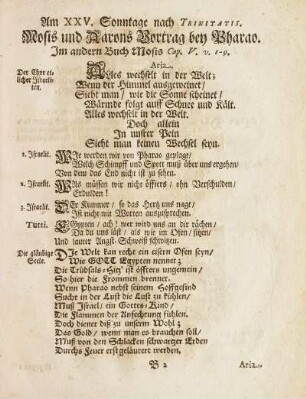 Am XXV. Sonntage nach TRINITATIS.
Mosis und Aarons Vortrag bey Pharao.
Im andern Buch Mosis Cap. V. v. 1-9.
Aria.
Der Chor etlicher Israeliten.
ALles wechselt in der Welt;
Wenn der Himmel ausgeweinet/
Sieht man/ wie die Sonne scheinet/
Wärmde folgt auff Schnee und Kält.
Alles wechselt in der Welt.
Doch allein
In unsrer Pein
Sieht man keinen Wechsel seyn.
1. Israelit. WIe werden wir von Pharao geplagt/
Welch Schimpff und Spott muß über uns ergehen/
Von dem das End nicht ist zu sehen.
2. Israelit. Was müssen wir nicht öffters/ ohn Verschulden/
Erdulden!
3. Israelit. DEr Kummer/ so das Hertz uns nagt/
Ist nicht mit Worten auszusprechen.
Tutti. EGypten/ ach! wer wird uns an dir rächen/
Da du uns läst/ als wie im Ofen/ sitzen/
Und lauter Angst-Schweiß schwitzen.
Die gläubige Seele.
DIe Welt kan recht ein eisern Ofen seyn/
Wie GOTT Egypten nennet;
Die Trübsals-Hitz' ist öffters ungemein/
So hier die Frommen brennet.
Wenn Pharao nebst seinem Hoffgesind
Sucht in der Lust die Lust zu kühlen/
Muß Israel/ ein Gottes-Kind/
Die Flammen der Anfechtung fühlen.
Doch dienet diß zu unserm Wohl;
Das Gold/ wenn man es brauchen soll/
Muß von den Schlacken schwartzer Erden
Durchs Feuer erst geläutert werden.
B 2
Aria.